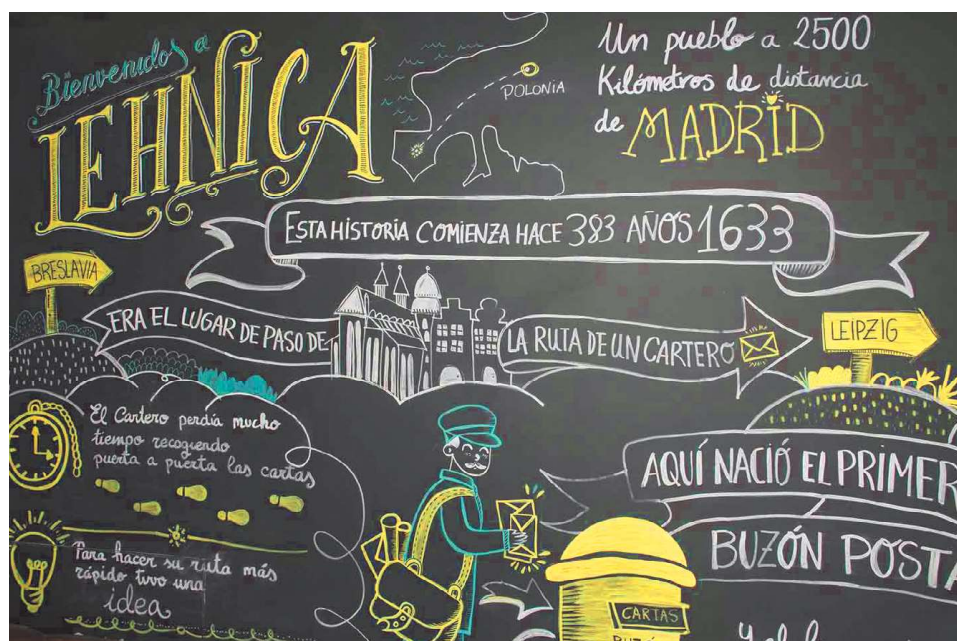 Bienvenidos a
LEHNICA
POLONIA
Un pueblo a 2500
Kilómetros de distancia
de MADRID
ESTA HISTORIA COMIENZA HACE 383 AÑOS 1633
BRESLAVIA
ERA EL LUGAR DE PASO DE
LA RUTA DE UN CARTERO
LEIPZIG
El Cartero perdía mucho
tiempo recogiendo
puerta a puerta las cartas
AQUÍ NACIÓ EL PRIMER
BUZÓN POSTA
Para hacer su ruta más
rápido tuvo una
idea
CARTAS